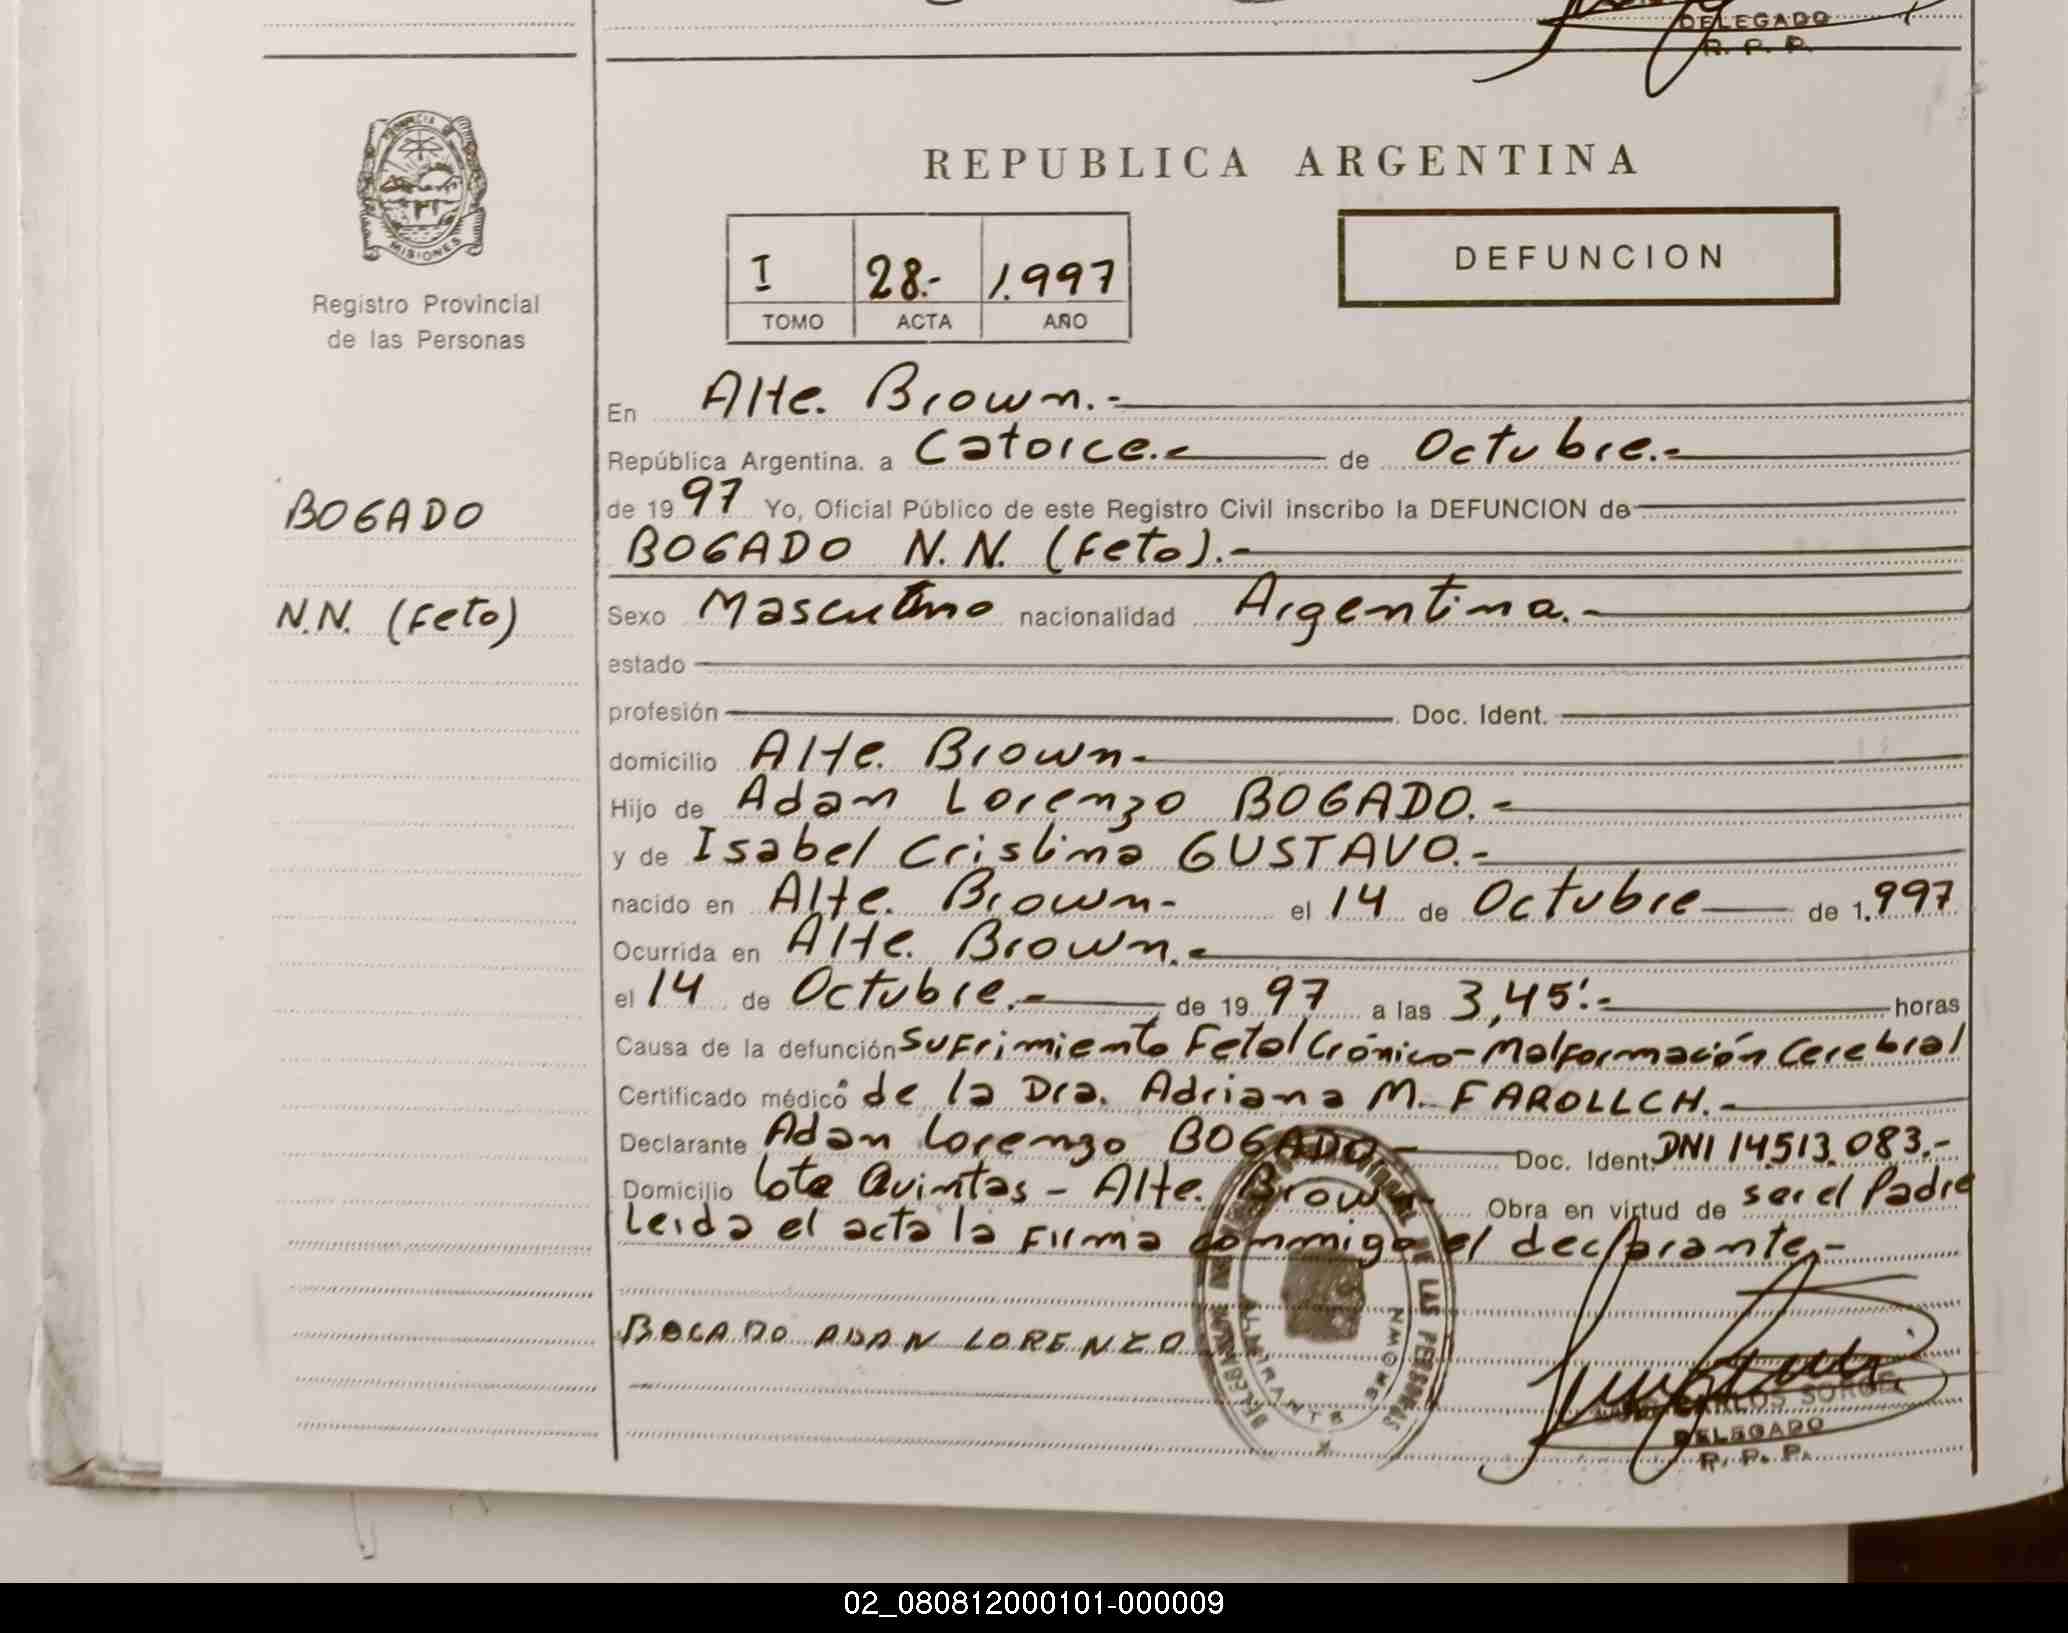 DELEGADO
R. P. P.
PROVINCIA DE
MISIONES
Registro Provincial
de las Personas
REPUBLICA ARGENTINA
I 28.- 1.997
TOMO ACTA AÑO
DEFUNCION
BOGADO
N.N. (Feto)
En Alte. Brown.-
República Argentina. a Catorce.- de Octubre.-
de 1997 Yo, Oficial Público de este Registro Civil inscribo la DEFUNCION de
BOGADO N.N. (Feto).-
Sexo Masculino nacionalidad Argentina.-
estado
profesión Doc. Ident.
domicilio Alte. Brown-
Hijo de Adan Lorenzo BOGADO.-
y de Isabel Cristina GUSTAVO.-
nacido en Alte. Brown- el 14 de Octubre de 1.997
Ocurrida en Alte. Brown.-
el 14 de Octubre.- de 1997 a las 3,45'.- horas
Causa de la defunción Sufrimiento Fetal Crónico-Malformación Cerebral
Certificado médico de la Dra. Adriana M. FAROLLCH.-
Declarante Adan Lorenzo BOGADO- Doc. Ident. DNI 14.513.083.-
Domicilio Lote Quintas - Alte. Brown Obra en virtud de ser el Padre
Leida el acta la firma conmigo el declarante,-
BOGADO ADAN LORENZO
DE LAS PERSONAS
ALMIRANTE BROWN
CARLOS SORGE
DELEGADO
R. P. P.
02_080812000101-000009